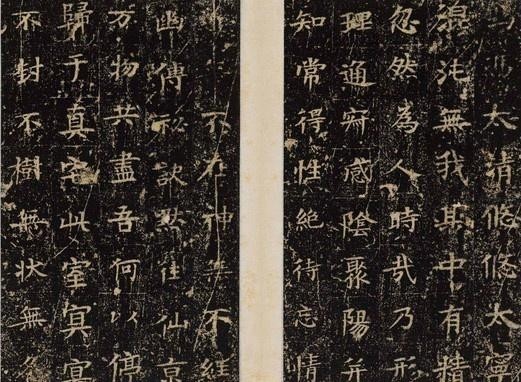 太清悠悠太寧
混沌無我其中有精
忽然為人時哉乃形
理通寂感陰聚陽并
知常得性絕待忘情
不在神無不經
幽傳祕訣默往仙京
万物共盡吾何以停
歸于真宅此室冥冥
不封不樹無狀無名